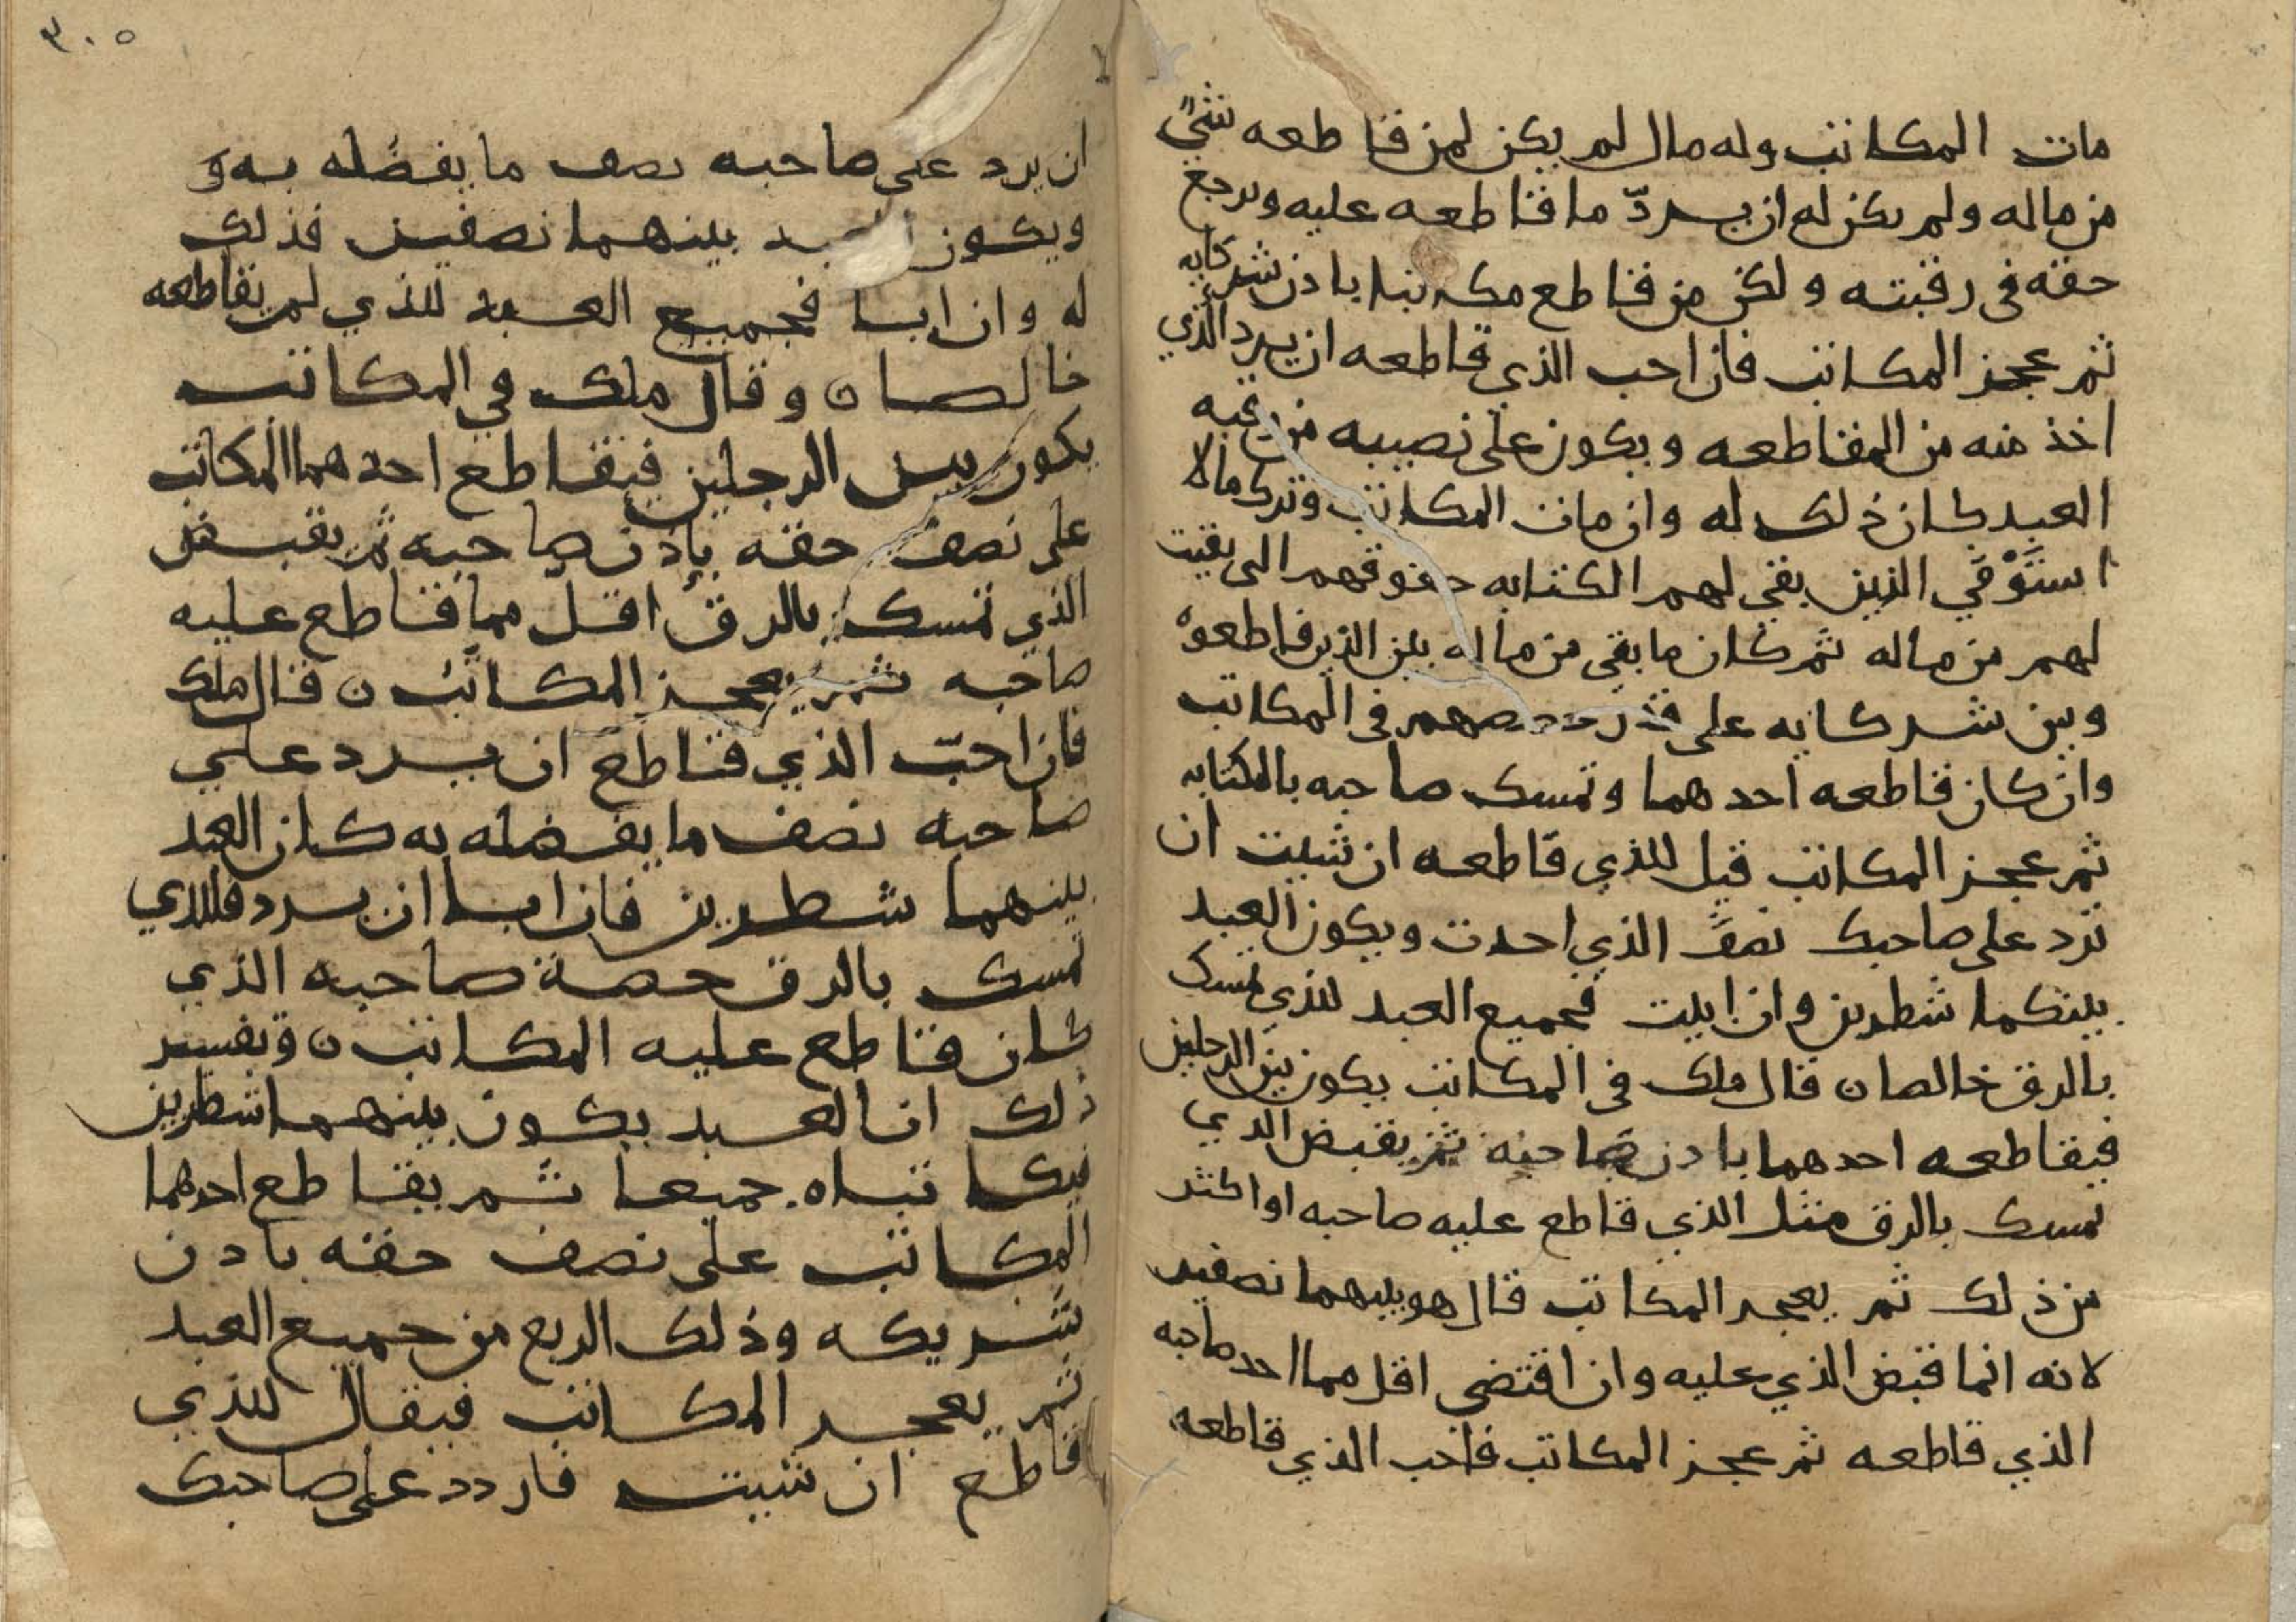 مات المكاتب وله مال لم يكن لمن قاطعه شيً
من ماله ولم يكن له ان يردّ ما قاطعه عليه ويرجع
حقه في رقبته ولكن من قاطع مكاتبا باذن شركايه
ثم عجز المكاتب فان احب الذي قاطعه ان يرد الذي
اخذ منه من المقاطعه ويكون على نصيبه من رقبه
العبد كان ذلك له وان مات المكاتب وترك مالا
استوْفي الذين بقي لهم الكتابه حقوقهم التي بقيت
لهم من ماله ثم كان ما بقي من ماله بين الذين قاطعوه
وبين شركايه على قدر حصصهم في المكاتب
وان كان قاطعه احدهما وتمسك صاحبه بالكتابه
ثم عجز المكاتب قيل للذي قاطعه ان شيت ان
ترد على صاحبك نصف الذي اخذت ويكون العبد
بينكما شطرين وان ابيت فجميع العبد للذي تمسك
بالرق خالصا ن قال ملك في المكاتب يكون بين الرجلين
فيقاطعه احدهما باذن صاحبه ثم يقبض الذي
تمسك بالرق مثل الذي قاطع عليه صاحبه او اكثر
من ذلك ثم يعجز المكاتب قال هو بينهما نصفين
لانه انما قبض الذي عليه وان اقتضى اقل مما اخذ صاحبه
الذي قاطعه ثم عجز المكاتب فاحب الذي قاطعه
٣٠٥
ان يرد على صاحبه نصف ما يفضله به و
ويكون العبد بينهما نصفين فذلك
له وان ابا فجميع العبد للذي لم يقاطعه
خالصا ن وقال ملك في المكاتب
يكون بين الرجلين فيقاطع احدهما المكاتب
على نصف حقه باذن صاحبه ثم يقبض
الذي تمسك بالرق اقل مما قاطع عليه
صاحبه ثم يعجز المكاتب ن قال ملك
فان احبّ الذي قاطع ان يرد علي
صاحبه نصف ما يفضله به كان العبد
بينهما شطرين فان ابا ان يرد فللذي
تمسك بالرق حصة صاحبه الذي
كان قاطع عليه المكاتب ن وتفسير
ذلك ان العبد يكون بينهما شطرين
فيكاتباه جميعا ثم يقاطع احدهما
المكاتب على نصف حقه باذن
شريكه وذلك الربع من جميع العبد
ثم يعجز المكاتب فيقال للذي
قاطع ان شيت فاردد على صاحبك